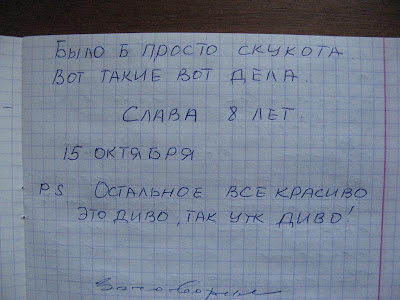 Было б просто скукота
Вот такие вот дела.
Слава 8 лет.
15 октября
P.S Остальное все красиво
это диво, так уж диво!